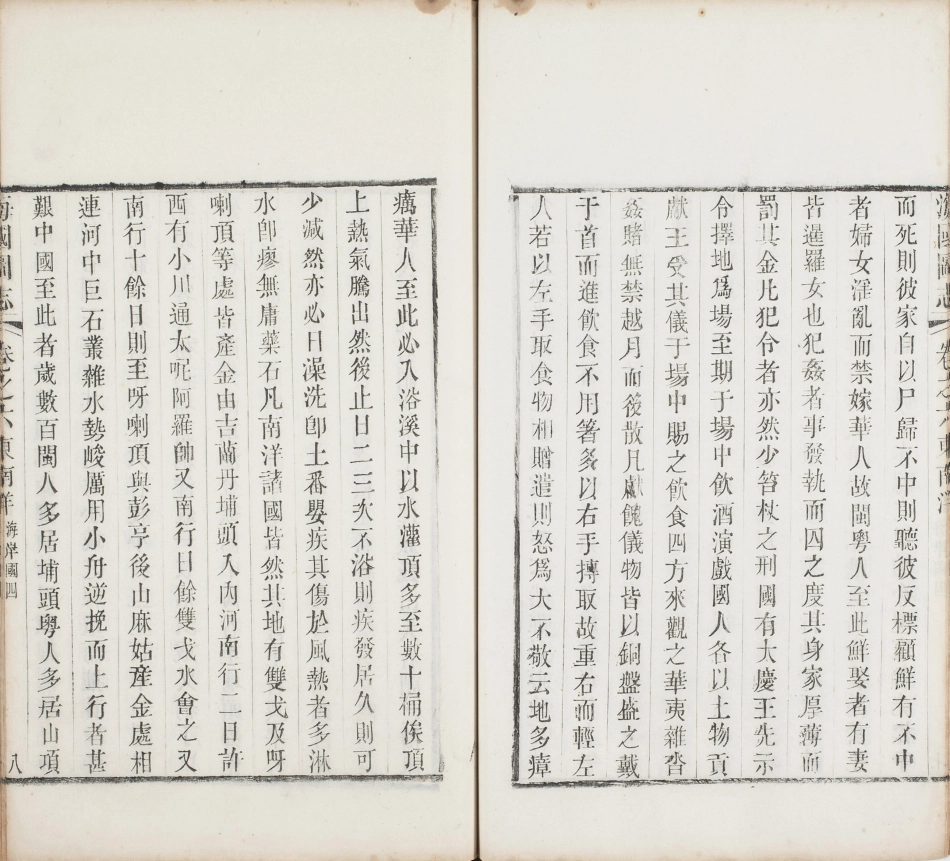 海國圖志
而死則彼家自以尸歸不中則聽彼反標顧鮮有不中
者婦女淫亂而禁嫁華人故閩粵人至此鮮娶者有妻
皆暹羅女也犯姦者事發執而囚之度其身家厚薄而
罰其金凡犯令者亦然少笞杖之刑國有大慶王先示
令擇地爲場至期于場中飲酒演戲國人各以土物貢
獻王受其儀于場中賜之飲食四方來觀之華夷雜沓
姦賭無禁越月而後散凡獻餽儀物皆以銅盤盛之戴
于首而進飲食不用箸多以右手摶取故重右而輕左
人若以左手取食物相贈遺則怒爲大不敬云地多瘴
癘華人至此必入浴溪中以水灌頂多至數十桶俟頂
上熱氣騰出然後止日二三次不浴則疾發居久則可
少減然亦必日澡洗卽土番嬰疾其傷於風熱者多淋
水卽瘳無庸藥石凡南洋諸國皆然其地有雙戈及呀
喇頂等處皆產金由吉蘭丹埔頭入內河南行二日許
西有小川通太呢阿羅帥又南行日餘雙戈水會之又
南行十餘日則至呀喇頂與彭亨後山麻姑產金處相
連河中巨石叢雜水勢峻厲用小舟逆挽而上行者甚
艱中國至此者歲數百閩人多居埔頭粵人多居山頂
海國圖志 卷之六 東南洋 海岸國四 八